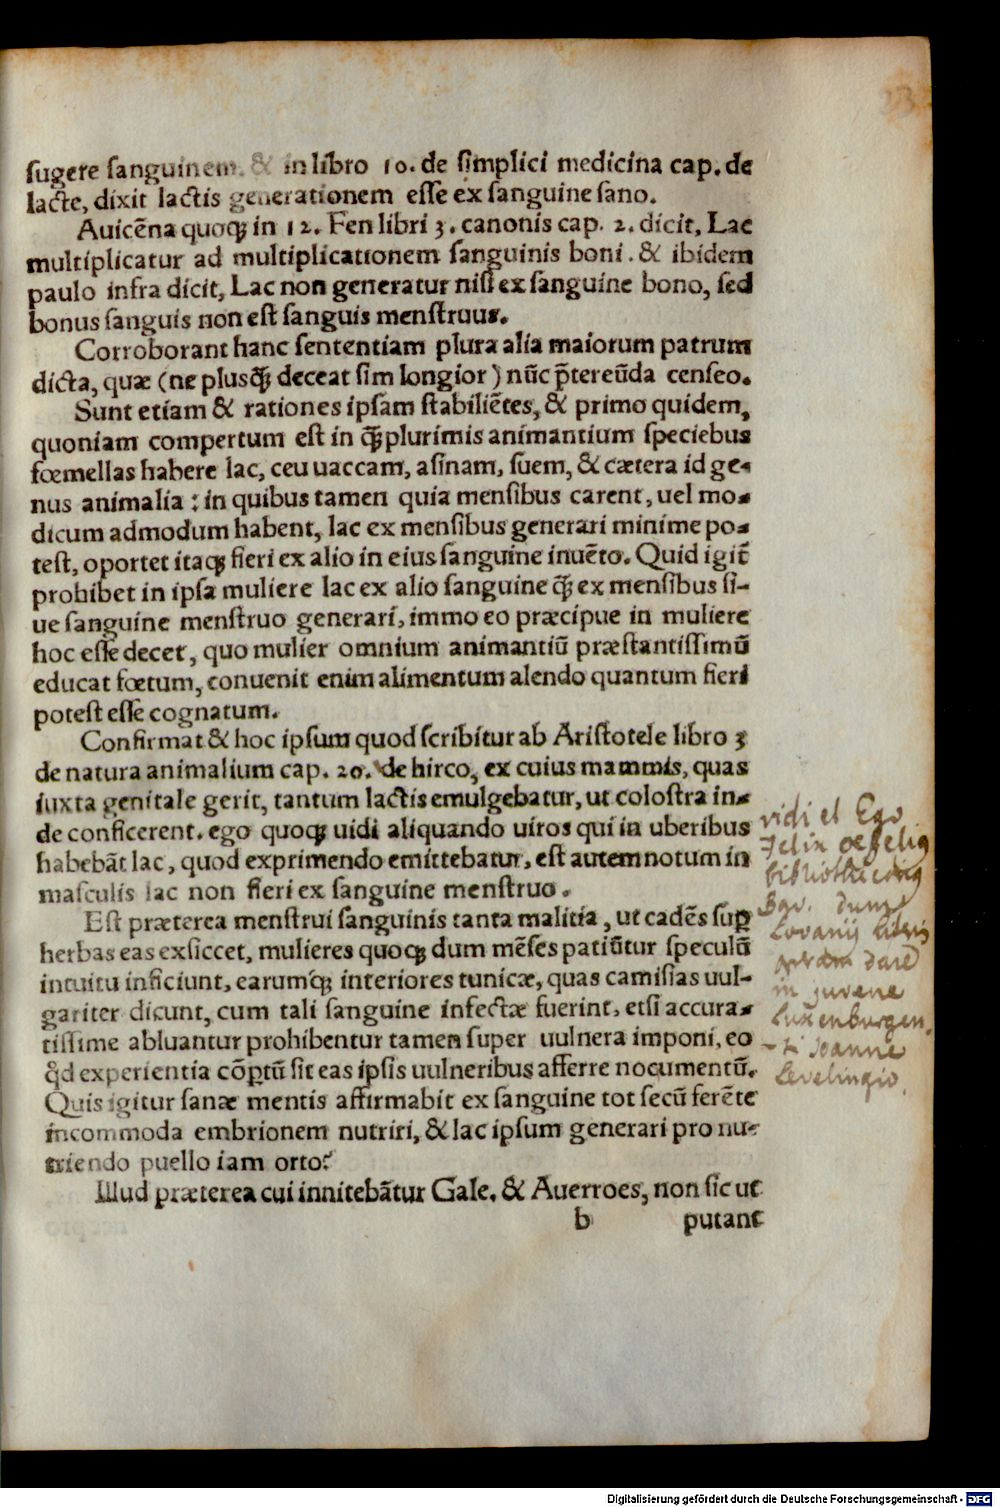 23
sugere sanguinem. & in libro 10. de simplici medicina cap. de
lacte, dixit lactis generationem esse ex sanguine sano.
Auicēna quoqꝫ in 12. Fen libri 3. canonis cap. 2. dicit, Lac
multiplicatur ad multiplicationem sanguinis boni. & ibidem
paulo infra dicit, Lac non generatur nisi ex sanguine bono, sed
bonus sanguis non est sanguis menstruus.
Corroborant hanc sententiam plura alia maiorum patrum
dicta, quæ (ne plusꝗ̃ deceat sim longior) nūc p̄tereūda censeo.
Sunt etiam & rationes ipsam stabiliētes, & primo quidem,
quoniam compertum est in ꝗ̃plurimis animantium speciebus
fœmellas habere lac, ceu uaccam, asinam, suem, & cætera id ge-
nus animalia: in quibus tamen quia mensibus carent, uel mo-
dicum admodum habent, lac ex mensibus generari minime po-
test, oportet itaqꝫ fieri ex alio in eius sanguine inuēto. Quid igit̃
prohibet in ipsa muliere lac ex alio sanguine ꝗ̃ ex mensibus si-
ue sanguine menstruo generari, immo eo præcipue in muliere
hoc esse decet, quo mulier omnium animantiū præstantissimū
educat fœtum, conuenit enim alimentum alendo quantum fieri
potest esse cognatum.
Confirmat & hoc ipsum quod scribitur ab Aristotele libro 3
de natura animalium cap. 20. de hirco, ex cuius mammis, quas
iuxta genitale gerit, tantum lactis emulgebatur, ut colostra in-
de conficerent. ego quoqꝫ uidi aliquando uiros qui in uberibus
habebāt lac, quod exprimendo emittebatur, est autem notum in
masculis lac non fieri ex sanguine menstruo.
Est præterea menstrui sanguinis tanta malitia, ut cadēs suꝑ
herbas eas exsiccet, mulieres quoqꝫ dum mēses patiūtur speculū
intuitu inficiunt, earumqꝫ interiores tunicæ, quas camisias uul-
gariter dicunt, cum tali sanguine infectæ fuerint, etsi accura-
tissime abluantur prohibentur tamen super uulnera imponi, eo
ꝙd experientia cōꝑtū sit eas ipsis uulneribus afferre nocumentū.
Quis igitur sanæ mentis affirmabit ex sanguine tot secū ferēte
incommoda embrionem nutriri, & lac ipsum generari pro nu-
triendo puello iam orto?
Illud præterea cui innitebātur Gale. & Auerroes, non sic ut
b putant
vidi et Ego
Felix oefelius
bibliothecarius
Bav. dum
Lovanij literis
operam darē
in juvene
Luxenburgen-
-zi Joanne
Levelingio.
Digitalisierung gefördert durch die Deutsche Forschungsgemeinschaft - DFG